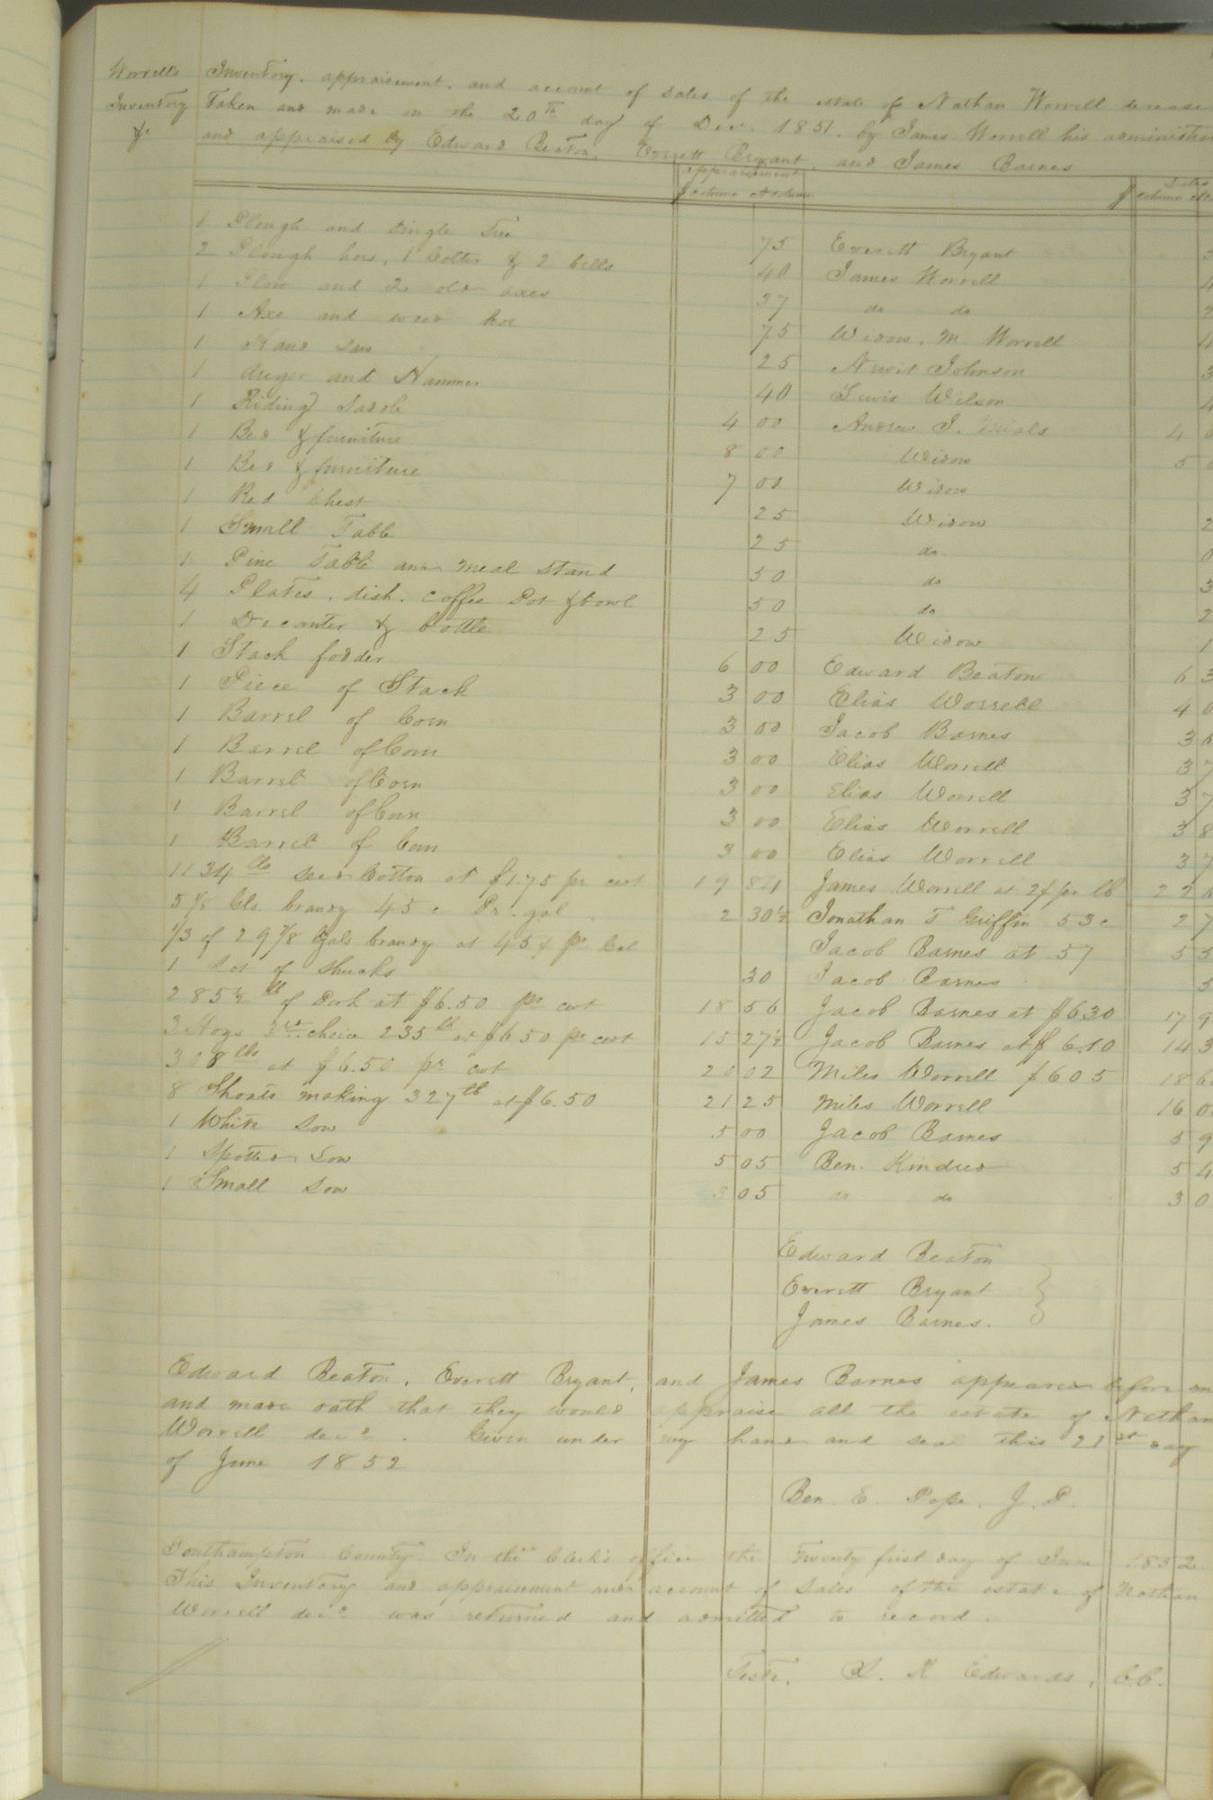 Worrell's Inventory &c
Inventory, appraisement, and account of sales of the estate of Nathan Worrell deceased
Taken and made on the 20th day of Dec. 1851. by James Worrell his administrator
and appraised by Edward Beaton, Everett Bryant, and James Barnes
appraisement Sales
1 Plough and single Tree 75 Everett Bryant
2 Plough hoes, 1 Colter & 2 bills 40 James Worrell
1 Plow and 2 old axes 37 do do
1 Axe and weed hoe 75 Widow. M. Worrell
1 Hand Saw 25 Newit Johnson
1 Auger and Hammer 40 Lewis Wilson
1 Riding Saddle 4 00 Andrew J. 4
1 Bed & furniture 8 00 Widow 5
1 Bed & furniture 7 00 Widow
1 Red Chest 25 Widow 2
1 Small Table 25 do 0
1 Pine Table and meal stand 50 do 3
4 Plates, dish, coffee Pot & bowl 50 do 2
1 Decanter & bottle 25 Widow 1
1 Stack fodder 6 00 Edward Beaton 6 3
1 Piece of Stack 3 00 Elias Worrell 4 0
1 Barrel of Corn 3 00 Jacob Barnes 3
1 Barrel of Corn 3 00 Elias Worrell 3 7
1 Barrel of Corn 3 00 Elias Worrell 3 7
1 Barrel of Corn 3 00 Elias Worrell 3 8
1 Barrel of Corn 3 00 Elias Worrell 3 7
1134 lbs seed Cotton at $1.75 pr cwt 19 84 James Worrell at 2¢ pr lb 22
5 1/8 Gls. brandy 45 c Pr. gal. 2 30½ Jonathan T Griffin 53 c 2 7
1/3 of 29 7/8 Gals brandy at 45¢ pr Gal Jacob Barnes at 57 5 5
1 Lot of shucks 30 Jacob Barnes 5
285½ lb of Pork at $6.50 pr cwt 18 56 Jacob Barnes at $6.30 17 9
3 Hogs choice 235 lb at $6.50 pr cwt 15 27½ Jacob Barnes at $6.10 14 3
308 lbs at $6.50 pr cwt 20 02 Miles Worrell $6.05 18 6
8 Shoats making 327 lb at $6.50 21 25 Miles Worrell 16 0
1 White Sow 5 00 Jacob Barnes 5 9
1 Spotted Sow 5 05 Ben. Kindred 5 4
1 Small Sow 3 05 do do 3 0
Edward Beaton
Everett Bryant
James Barnes.
Edward Beaton, Everett Bryant, and James Barnes appeared before me
and made oath that they would appraise all the estate of Nathan
Worrell decd. Given under my hand and seal this 21st day
of June 1852
Ben. E. Pope. J. P.
Southampton County. In the Clerk's office the Twenty first day of June 1852
This Inventory and appraisement and account of Sales of the estate of Nathan
Worrell decd. was returned and admitted to record.
Teste, L. R Edwards, C.C.